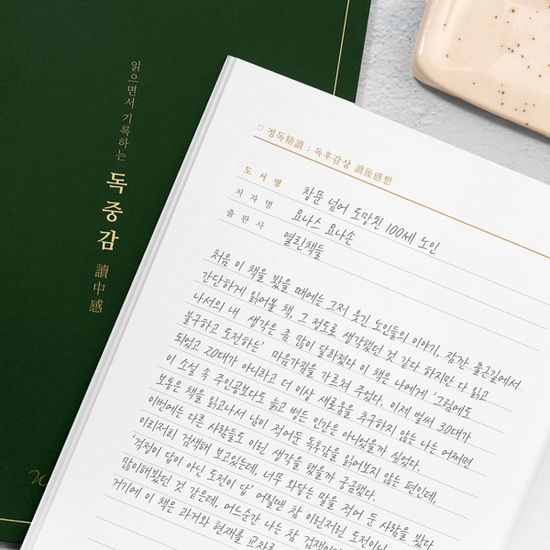 읽으면서 기록하는
독중감
讀中感
W
□ 정독精讀 : 독후감상 讀後感想
도서명 창문 넘어 도망친 100세 노인
저자명 요나스 요나손
출판사 열린책들
처음 이 책을 봤을 때에는 그저 웃긴 노인들의 이야기. 잠깐 출근길에서
간단하게 읽어볼 책, 그 정도로 생각했던 것 같다 하지만 다 읽고
나서의 내 생각은 좀 많이 달라졌다 이 책은 나에게 '그럼에도
불구하고 도전하는' 마음가짐을 가르쳐 주었다. 이제 벌써 30대가
되었고 20대가 아니라고 더 이상 새로움을 추구하지 않는 나는 어쩌면
이 소설 속 주인공보다도 늙고 병든 인간은 아니었을까 싶었다.
보통은 책을 읽고나서 남이 적어둔 독후감을 읽어보지 않는 편인데,
이번에는 다른 사람들도 이런 생각을 했을까 궁금했다.
이리저리 검색해 보고있는데, 너무 와닿는 말을 적어 둔 사람을 봤다
'걱정이 답이 아닌 도전이 답' 어릴땐 참 이런저런 도전이니
많이해봤던 것 같은데, 어느순간 나는 참 겁쟁이
거기에 이 책은 과거와 현재를 교차로